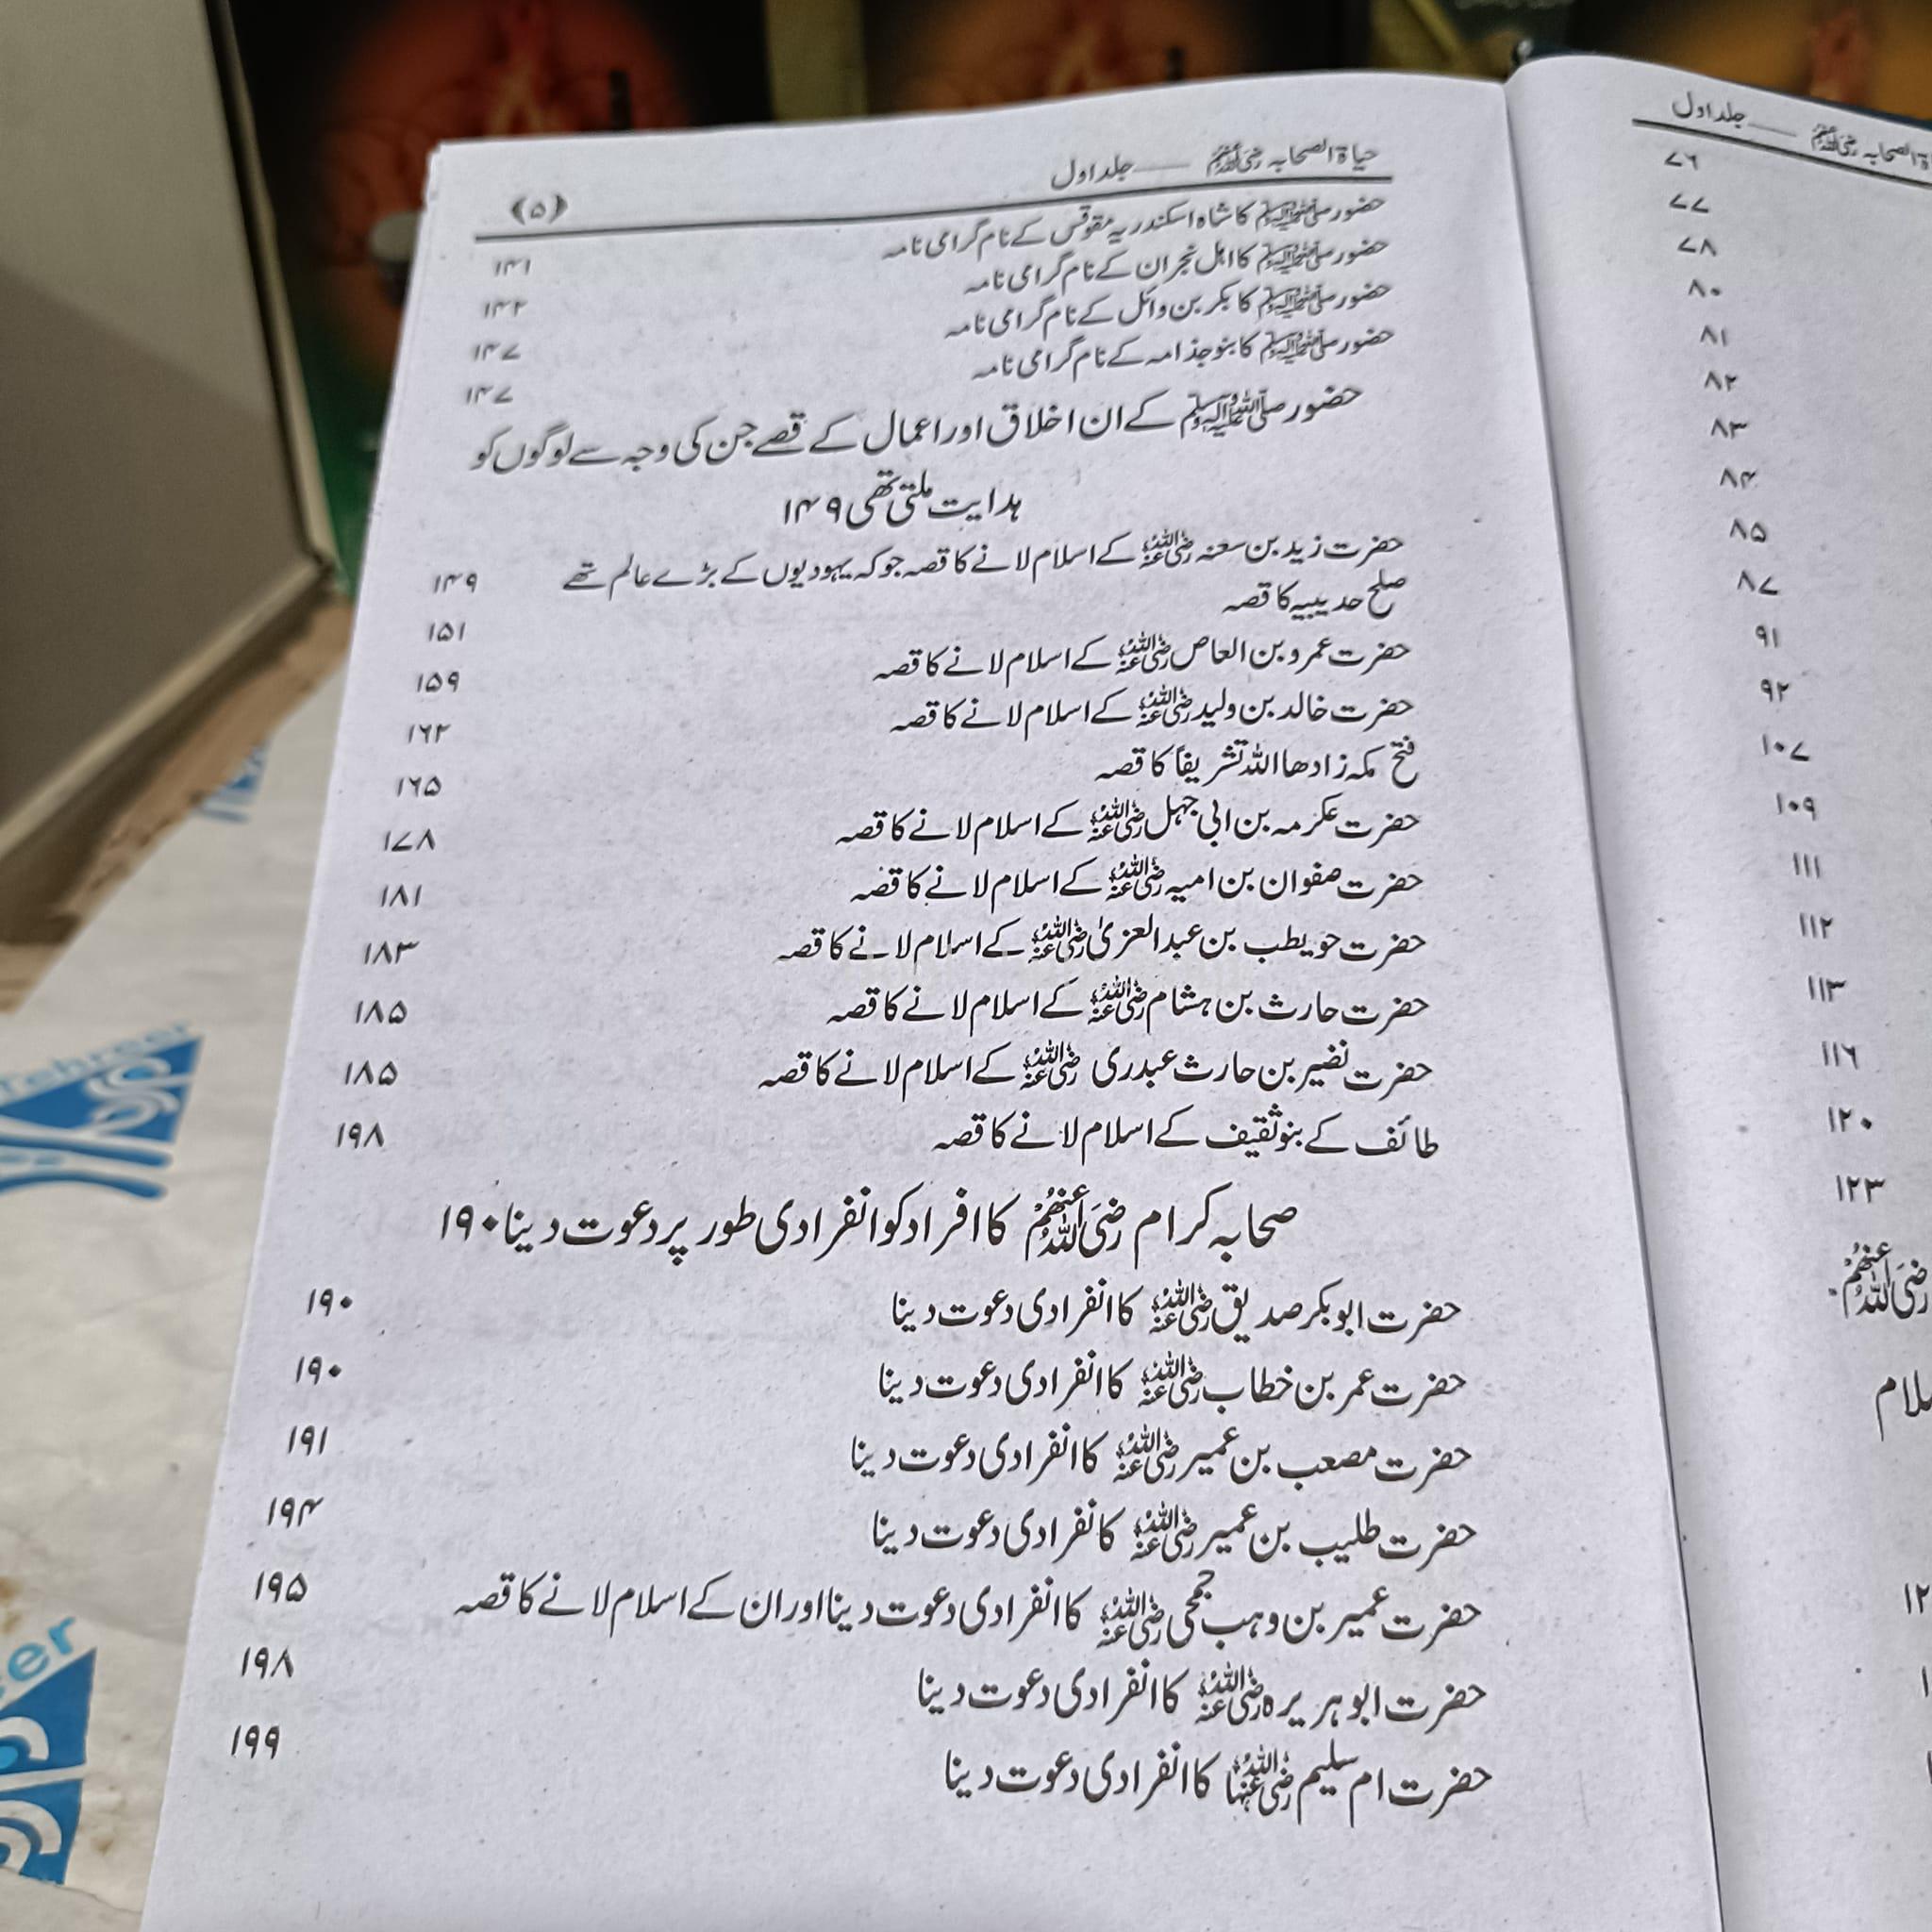 حیاۃ الصحابہ رضی اللہ عنہم ــــ جلد اول ﴿۵﴾
حضور صلی اللہ علیہ وسلم کا شاہ اسکندریہ مقوقس کے نام گرامی نامہ ۱۴۱
حضور صلی اللہ علیہ وسلم کا اہل نجران کے نام گرامی نامہ ۱۴۲
حضور صلی اللہ علیہ وسلم کا بکر بن وائل کے نام گرامی نامہ ۱۴۷
حضور صلی اللہ علیہ وسلم کا بنو جذامہ کے نام گرامی نامہ ۱۴۷
حضور صلی اللہ علیہ وسلم کے ان اخلاق اور اعمال کے قصے جن کی وجہ سے لوگوں کو
ہدایت ملتی تھی ۱۴۹
حضرت زید بن سعنہ رضی اللہ عنہ کے اسلام لانے کا قصہ جو کہ یہودیوں کے بڑے عالم تھے ۱۴۹
صلح حدیبیہ کا قصہ ۱۵۱
حضرت عمرو بن العاص رضی اللہ عنہ کے اسلام لانے کا قصہ ۱۵۹
حضرت خالد بن ولید رضی اللہ عنہ کے اسلام لانے کا قصہ ۱۶۲
فتح مکہ زادھا اللہ تشریفاً کا قصہ ۱۶۵
حضرت عکرمہ بن ابی جہل رضی اللہ عنہ کے اسلام لانے کا قصہ ۱۷۸
حضرت صفوان بن امیہ رضی اللہ عنہ کے اسلام لانے کا قصہ ۱۸۱
حضرت حویطب بن عبد العزیٰ رضی اللہ عنہ کے اسلام لانے کا قصہ ۱۸۳
حضرت حارث بن ہشام رضی اللہ عنہ کے اسلام لانے کا قصہ ۱۸۵
حضرت نضیر بن حارث عبدری رضی اللہ عنہ کے اسلام لانے کا قصہ ۱۸۵
طائف کے بنو ثقیف کے اسلام لانے کا قصہ ۱۹۸
صحابہ کرام رضی اللہ عنہم کا افراد کو انفرادی طور پر دعوت دینا ۱۹۰
حضرت ابوبکر صدیق رضی اللہ عنہ کا انفرادی دعوت دینا ۱۹۰
حضرت عمر بن خطاب رضی اللہ عنہ کا انفرادی دعوت دینا ۱۹۰
حضرت مصعب بن عمیر رضی اللہ عنہ کا انفرادی دعوت دینا ۱۹۱
حضرت طلیب بن عمیر رضی اللہ عنہ کا نفرادی دعوت دینا ۱۹۴
حضرت عمیر بن وہب جمحی رضی اللہ عنہ کا انفرادی دعوت دینا اور ان کے اسلام لانے کا قصہ ۱۹۵
حضرت ابو ہریرہ رضی اللہ عنہ کا انفرادی دعوت دینا ۱۹۸
حضرت ام سلیم رضی اللہ عنہا کا انفرادی دعوت دینا ۱۹۹
الصحابہ رضی اللہ عنہم ــــ جلد اول
۷۶
۷۷
۷۸
۸۰
۸۱
۸۲
۸۳
۸۴
۸۵
۸۷
۹۱
۹۲
۱۰۷
۱۰۹
۱۱۱
۱۱۲
۱۱۳
۱۱۶
۱۲۰
۱۲۳
رضی اللہ عنہم